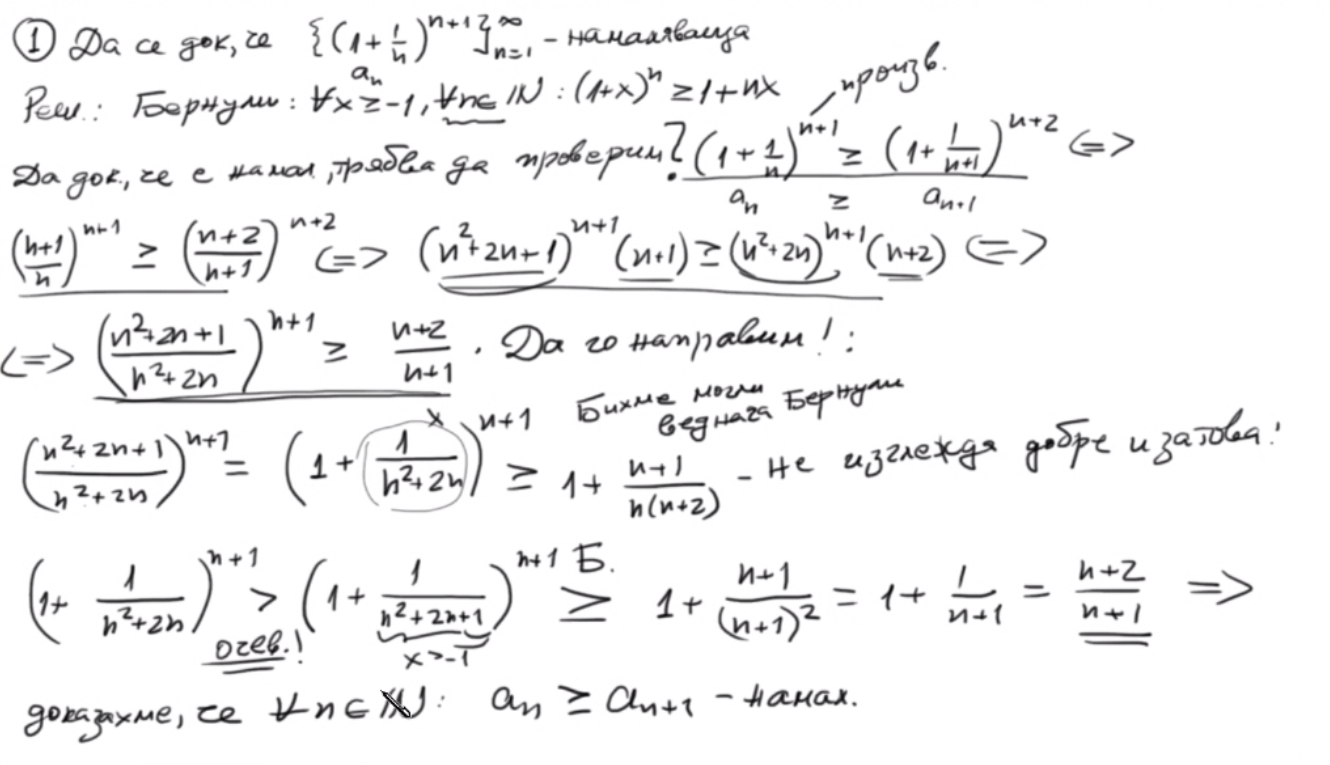 ① Да се док, че {(1+1/n)^(n+1)}_(n=1)^∞ - намаляваща
a_n
Реш.: Бернули: ∀x ≥ -1, ∀n∈ℕ : (1+x)^n ≥ 1+nx
произв.
Да док., че е намал, трябва да проверим? (1+1/n)^(n+1) ≥ (1+1/(n+1))^(n+2) <=>
a_n ≥ a_(n+1)
((n+1)/n)^(n+1) ≥ ((n+2)/(n+1))^(n+2) <=> (n²+2n+1)^(n+1) (n+1) ≥ (n²+2n)^(n+1) (n+2) <=>
<=> ((n²+2n+1)/(n²+2n))^(n+1) ≥ (n+2)/(n+1) . Да го направим! :
Бихме могли
веднага Бернули
((n²+2n+1)/(n²+2n))^(n+1) = (1+ 1/(n²+2n))^(n+1) ≥ 1+ (n+1)/(n(n+2)) - не изглежда добре и затова!
x
(1+ 1/(n²+2n))^(n+1) > (1+ 1/(n²+2n+1))^(n+1) Б. ≥ 1+ (n+1)/(n+1)² = 1+ 1/(n+1) = (n+2)/(n+1) =>
очев.! x>-1
доказахме, че ∀n∈ℕ: a_n ≥ a_(n+1) - намал.